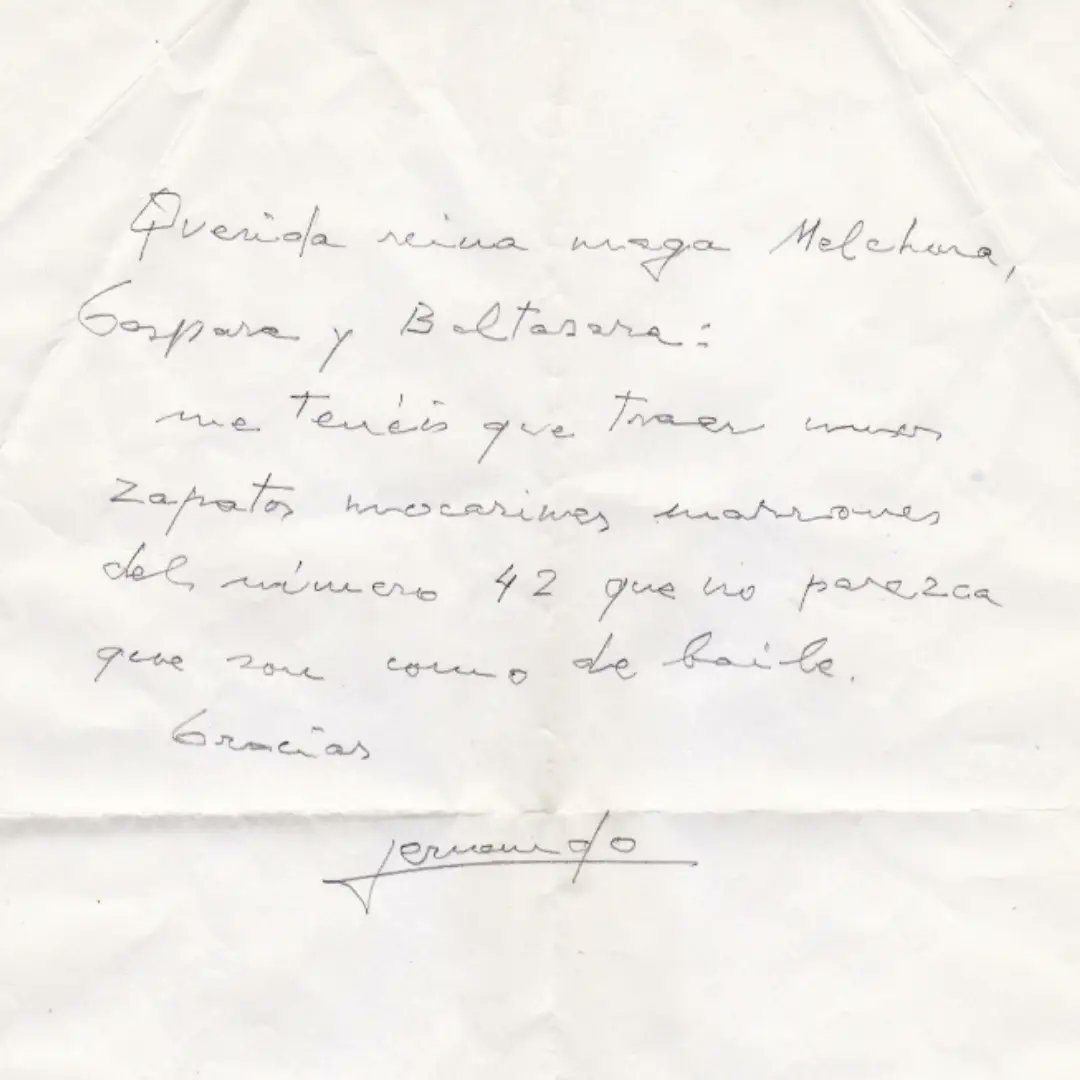 Querida reina maga Melchora,
Gaspara y Baltasara:
me tenéis que traer unos
zapatos mocasines marrones
del número 42 que no parezca
que son como de baile.
Gracias
Fernando